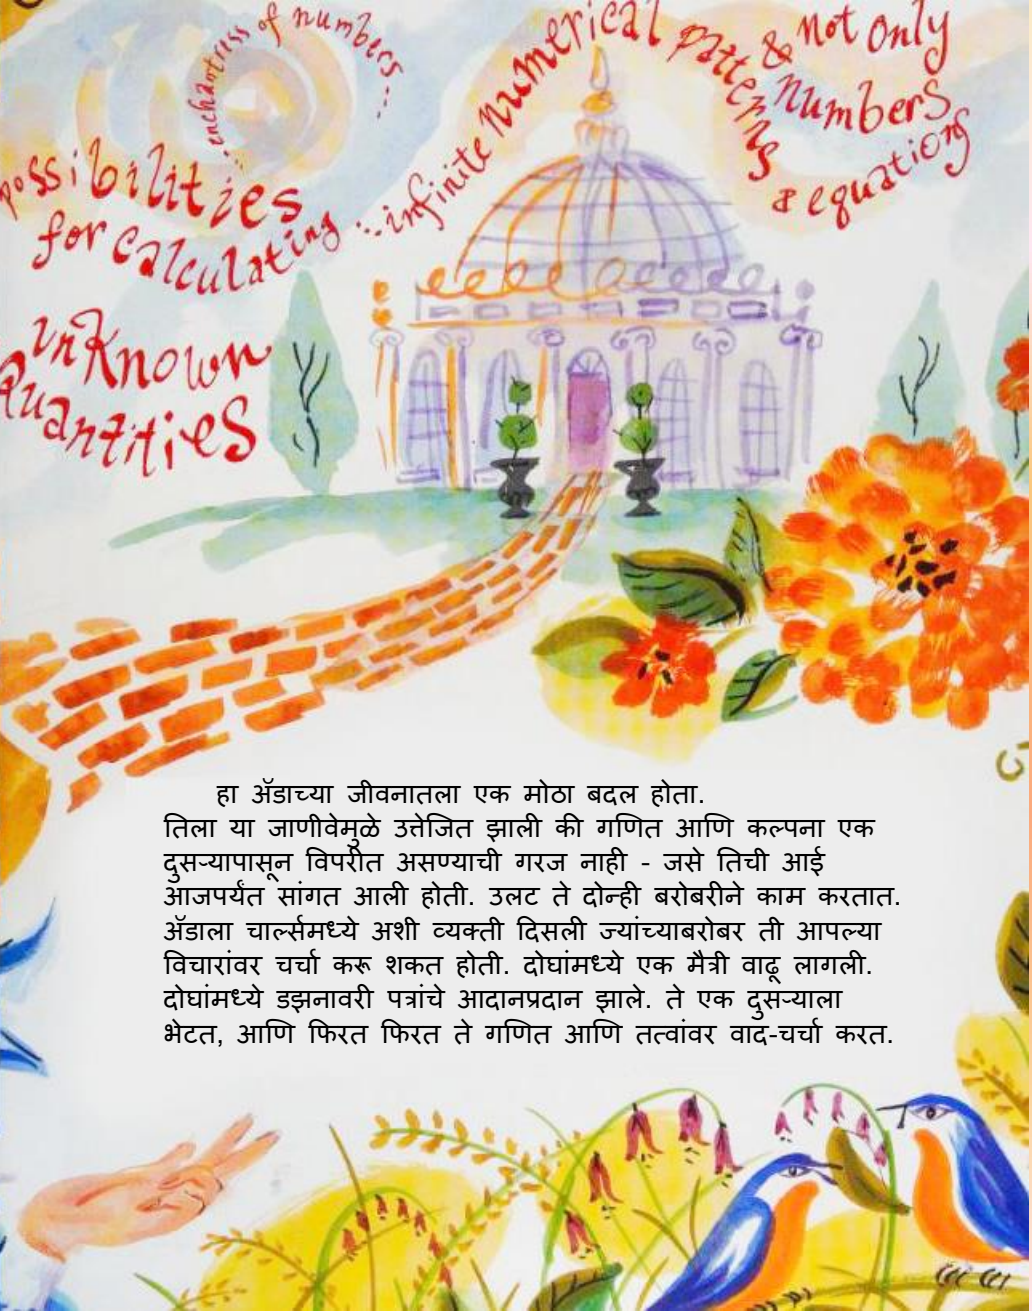 enchantress of numbers...
possibilities
for calculating
...infinite numerical patterns
& not only
numbers
& equations
unknown
Quantities
हा ॲडाच्या जीवनातला एक मोठा बदल होता.
तिला या जाणीवेमुळे उत्तेजित झाली की गणित आणि कल्पना एक
दुसऱ्यापासून विपरीत असण्याची गरज नाही - जसे तिची आई
आजपर्यंत सांगत आली होती. उलट ते दोन्ही बरोबरीने काम करतात.
ॲडाला चार्ल्समध्ये अशी व्यक्ती दिसली ज्यांच्याबरोबर ती आपल्या
विचारांवर चर्चा करू शकत होती. दोघांमध्ये एक मैत्री वाढू लागली.
दोघांमध्ये डझनावरी पत्रांचे आदानप्रदान झाले. ते एक दुसऱ्याला
भेटत, आणि फिरत फिरत ते गणित आणि तत्वांवर वाद-चर्चा करत.